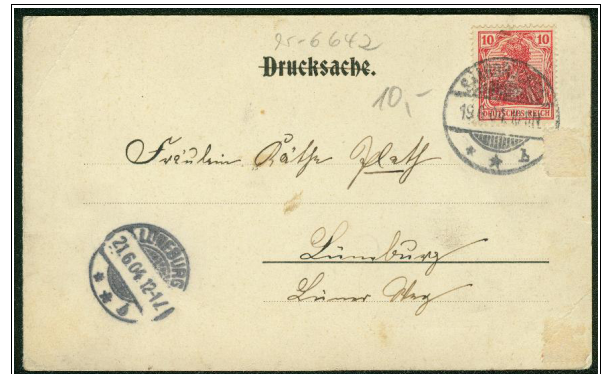 25-6642
Drucksache.
10,-
10 10
DEUTSCHES REICH
19
* * b
Fräulein Käthe Plath
Lüneburg
Lüner Weg
LÜNEBURG
21.6.04.12-1
* * b